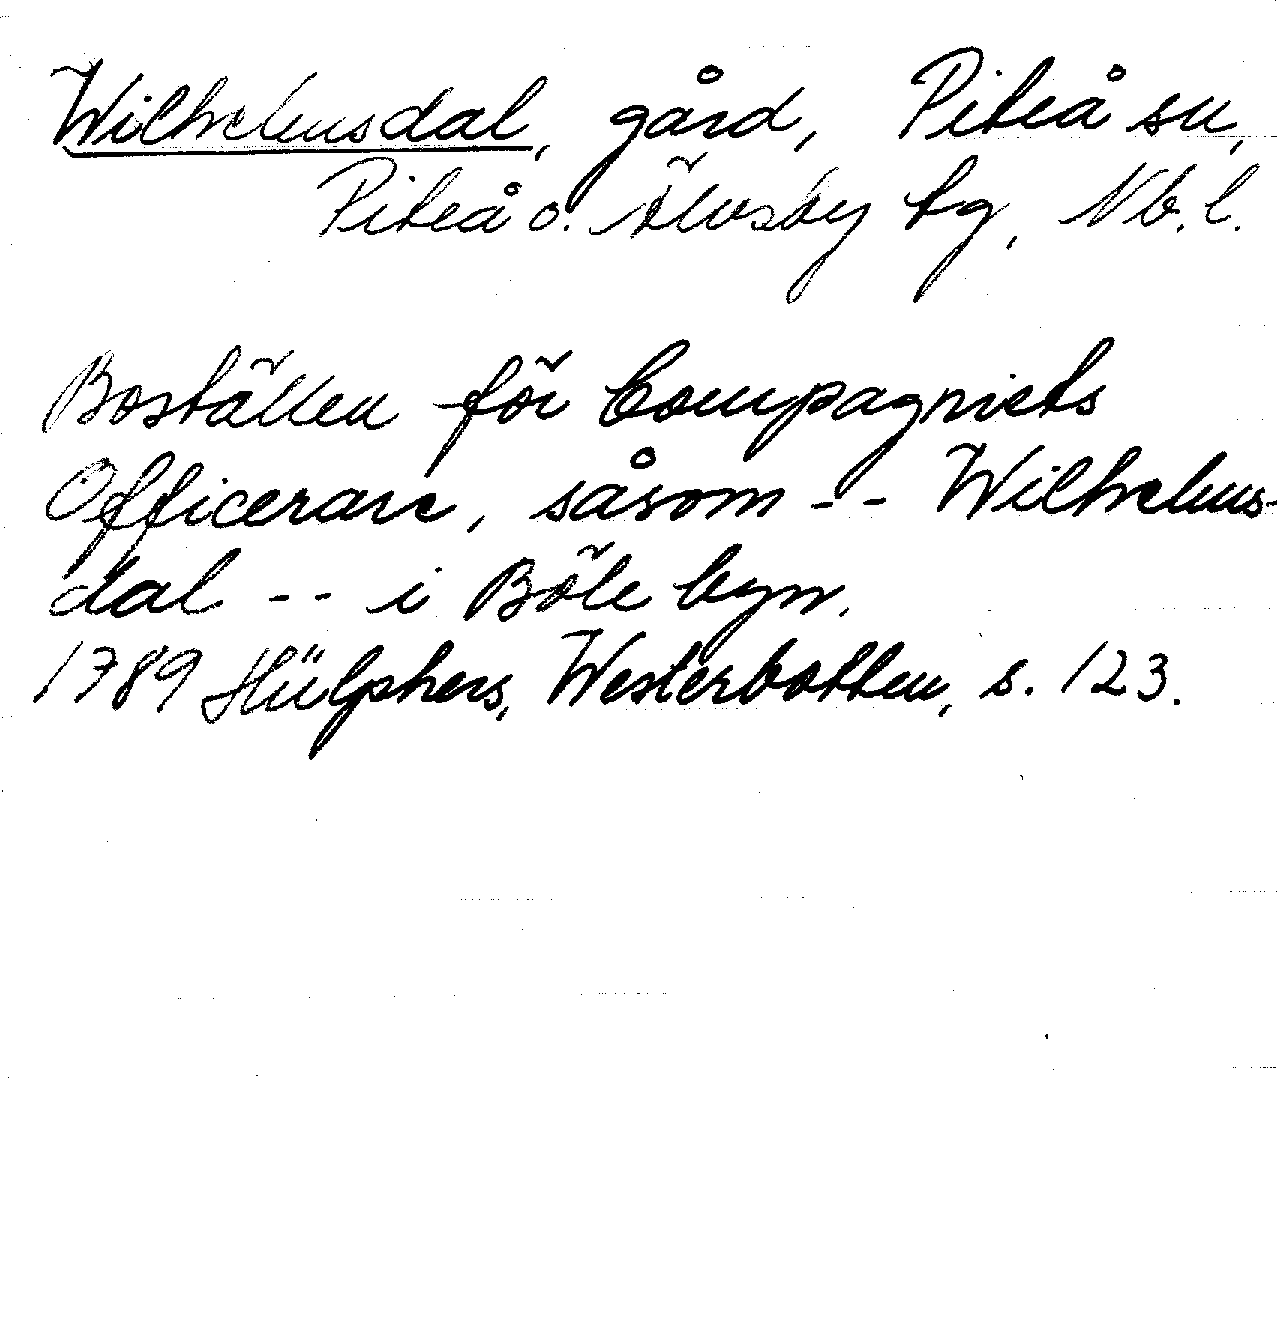 Wilhelmsdal, gård, Piteå sn,
Piteå o. Älvsby tg, Nb. l.
Boställen för Compagniets
Officerare, såsom -- Wilhelms-
dal -- i Böle byn.
1789 Hülphers, Westerbotten, s. 123.